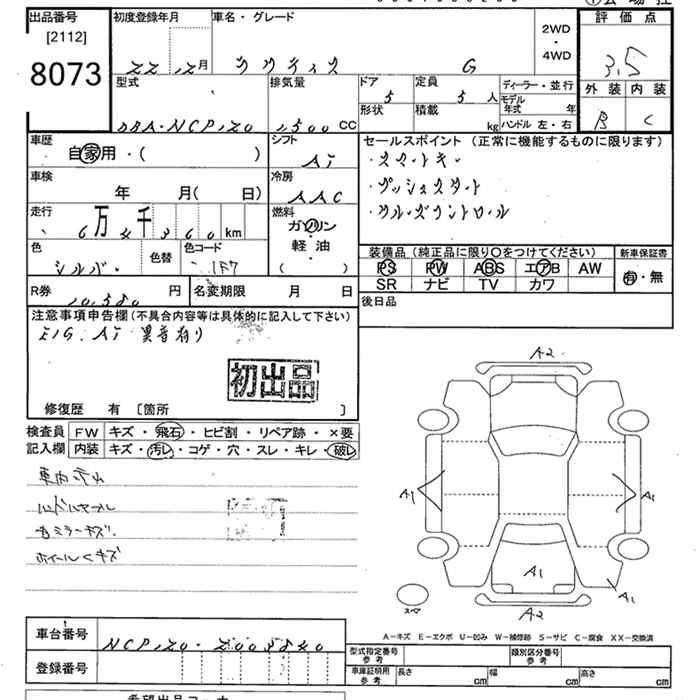 出品番号
[2112]
8073
初度登録年月
22.12月
車名・グレード
ラクティス G
2WD
・
4WD
評価点
3.5
外装 内装
B C
型式
DBA・NCP120
排気量
1,500 CC
ドア
5
形状
定員
5人
積載
kg
ディーラー・並行
モデル年式 年
ハンドル 左・右
車歴
自家用・( )
シフト
AT
車検
年 月( 日)
冷房
AAC
走行
6万4千360km
燃料
ガソリン
軽油
( )
色
シルバー
色替
色コード
1F7
セールスポイント (正常に機能するものに限ります)
・スマートキー
・プッシュスタート
・クルーズコントロール
装備品 (純正品に限り○をつけてください)
PS PW ABS エアB AW
SR ナビ TV カワ
新車保証書
有・無
後日品
R券
10,380円
名変期限 月 日
注意事項申告欄 (不具合内容等は具体的に記入して下さい)
E/G. AT 異音有り
初出品
修復歴 有 [箇所 ]
検査員 FW キズ・飛石・ヒビ割・リペア跡・×要
記入欄 内装 汚レ・コゲ・穴・スレ・キレ・破レ
車内汚れ
ハンドルスレ
ミラーキズ
ホイールキズ
A2
A1 A1
A1
A1
A2
スペア
A-キズ E-エクボ U-凹み W-補修跡 S-サビ C-腐食 XX-交換済
車台番号
NCP120-2003820
登録番号
型式指定番号 参考
類別区分番号 参考
車庫証明用 参考
長さ cm
幅 cm
高さ cm